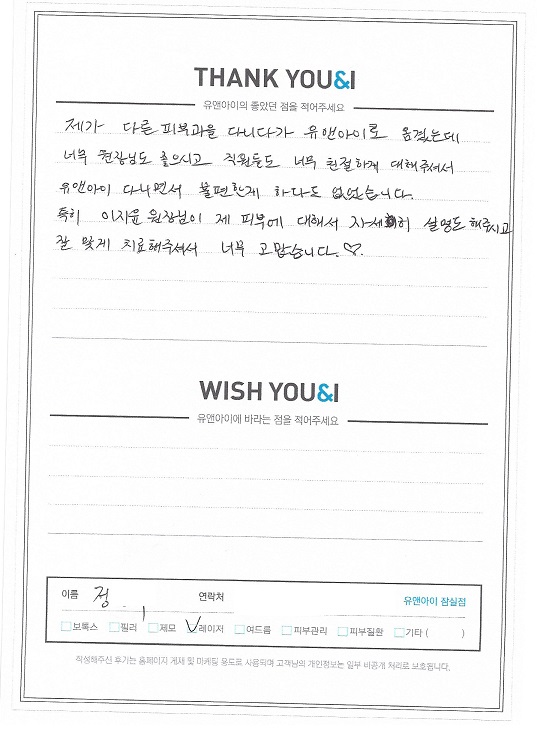 THANK YOU&I
유앤아이의 좋았던 점을 적어주세요
제가 다른 피부과을 다니다가 유앤아이로 옮겼는데
너무 원장님도 좋으시고 직원들도 너무 친절하게 대해주셔서
유앤아이 다니면서 불편한게 하나도 없었습니다.
특히 이지윤 원장님이 제 피부에 대해서 자세히 설명도 해주시고
잘 맞게 치료해주셔서 너무 고맙습니다. ♡.
WISH YOU&I
유앤아이에 바라는 점을 적어주세요
이름 정 연락처 유앤아이 잠실점
보톡스 필러 제모 레이저 여드름 피부관리 피부질환 기타 ( )
작성해주신 후기는 홈페이지 게재 및 마케팅 용도로 사용되며 고객님의 개인정보는 일부 비공개 처리로 보호됩니다.